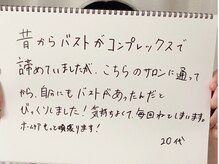 昔からバストがコンプレックスで
諦めていましたが、こちらのサロンに通って
から、自分にもバストがあったんだと
びっくりしました！気持ちよくて毎回ねてしまいます。
ホームケアもっと頑張ります！
20代